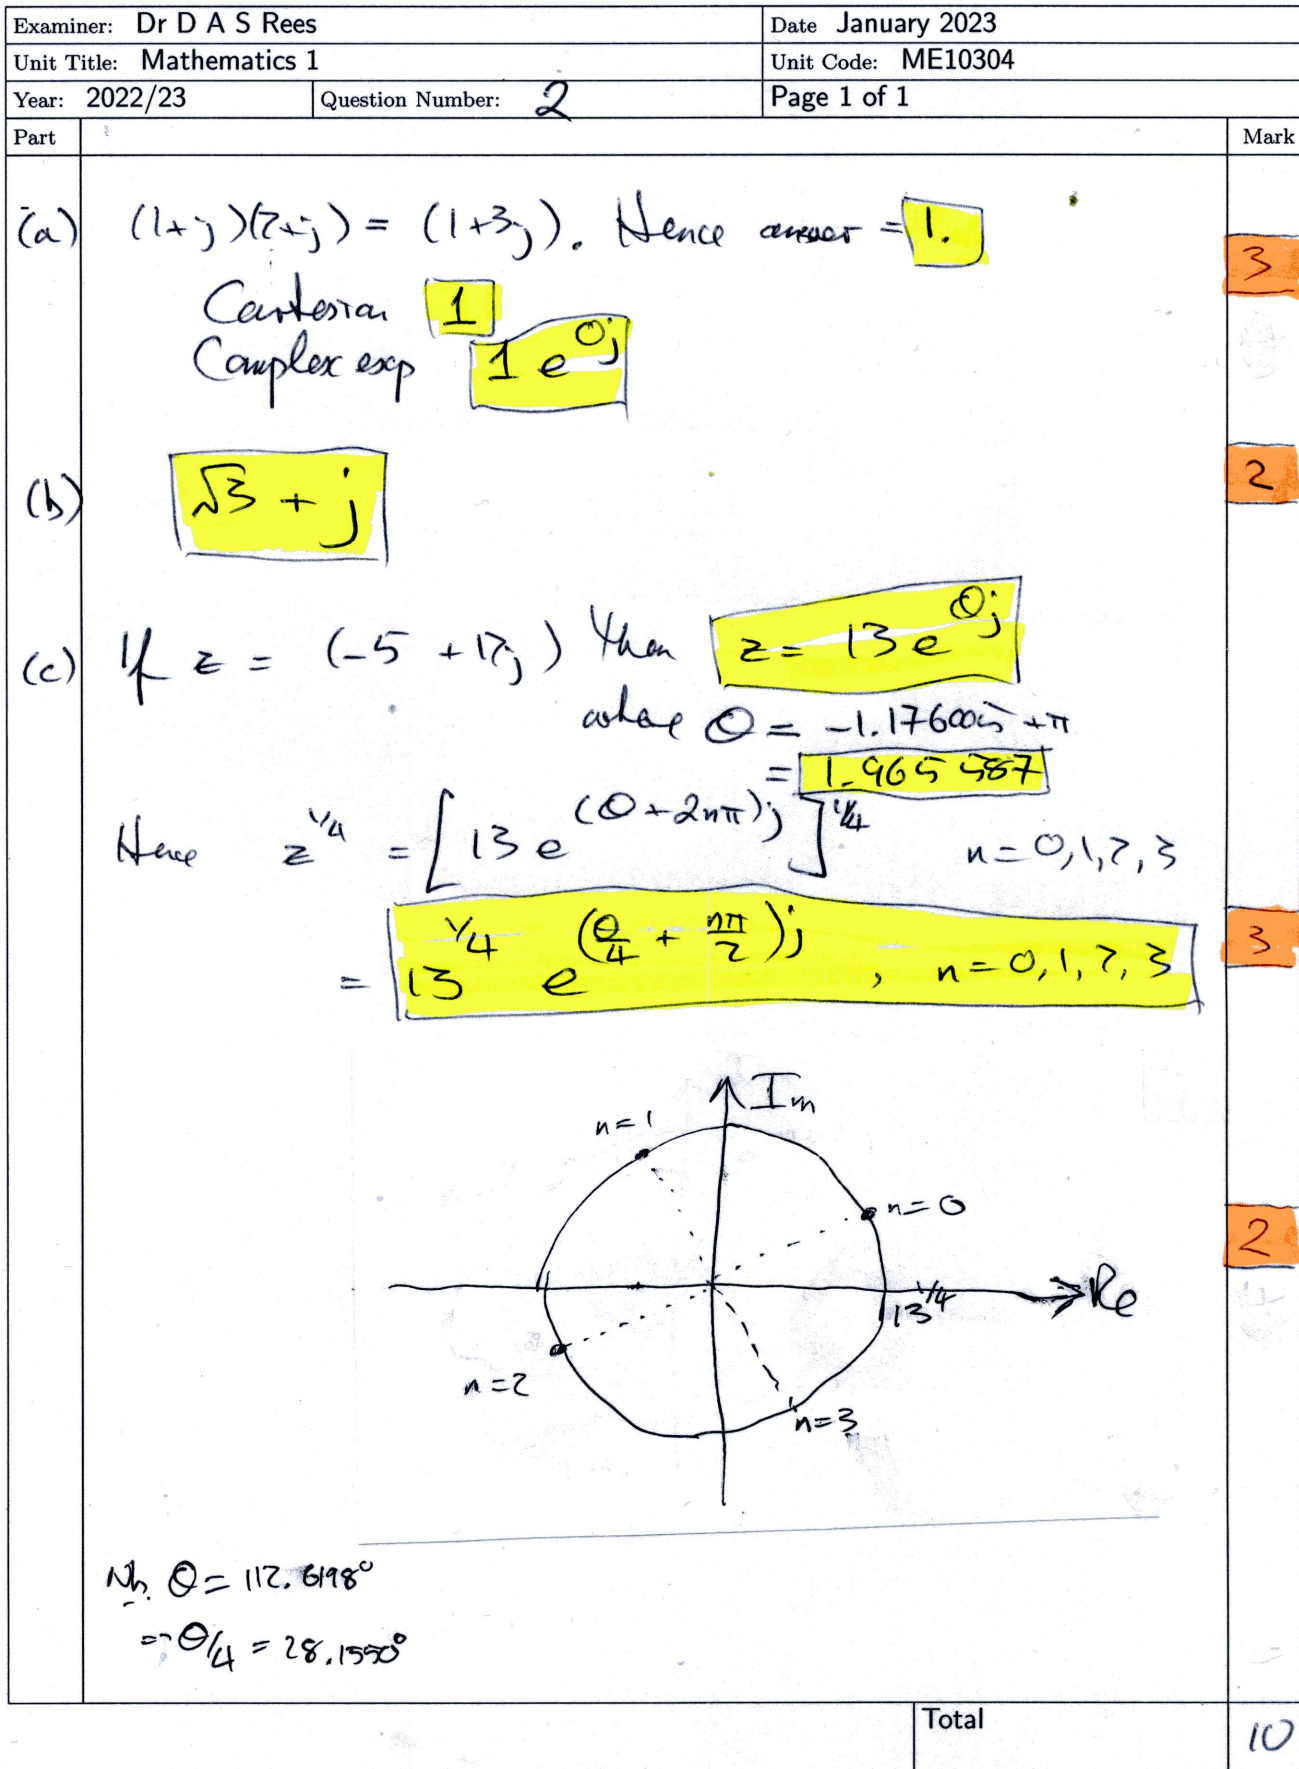 Examiner: Dr D A S Rees
Date January 2023
Unit Title: Mathematics 1
Unit Code: ME10304
Year: 2022/23
Question Number: 2
Page 1 of 1
Part
Mark
(a) (1+j)(2+j) = (1+3j). Hence answer = 1.
3
Cartesian 1
Complex exp 1 e^{0j}
(b) √3 + j
2
(c) If z = (-5 + 12j) then z = 13 e^{θj}
where θ = -1.176005 + π
= 1.965 587
Hence z^{1/4} = [13 e^{(θ+2nπ)j}]^{1/4} n=0,1,2,3
= 13^{1/4} e^{(θ/4 + nπ/2)j}, n=0,1,2,3
3
Im
n=1
n=0
2
Re
13^{1/4}
n=2
n=3
Nb. θ = 112.6198°
⇒ θ/4 = 28.1550°
Total
10